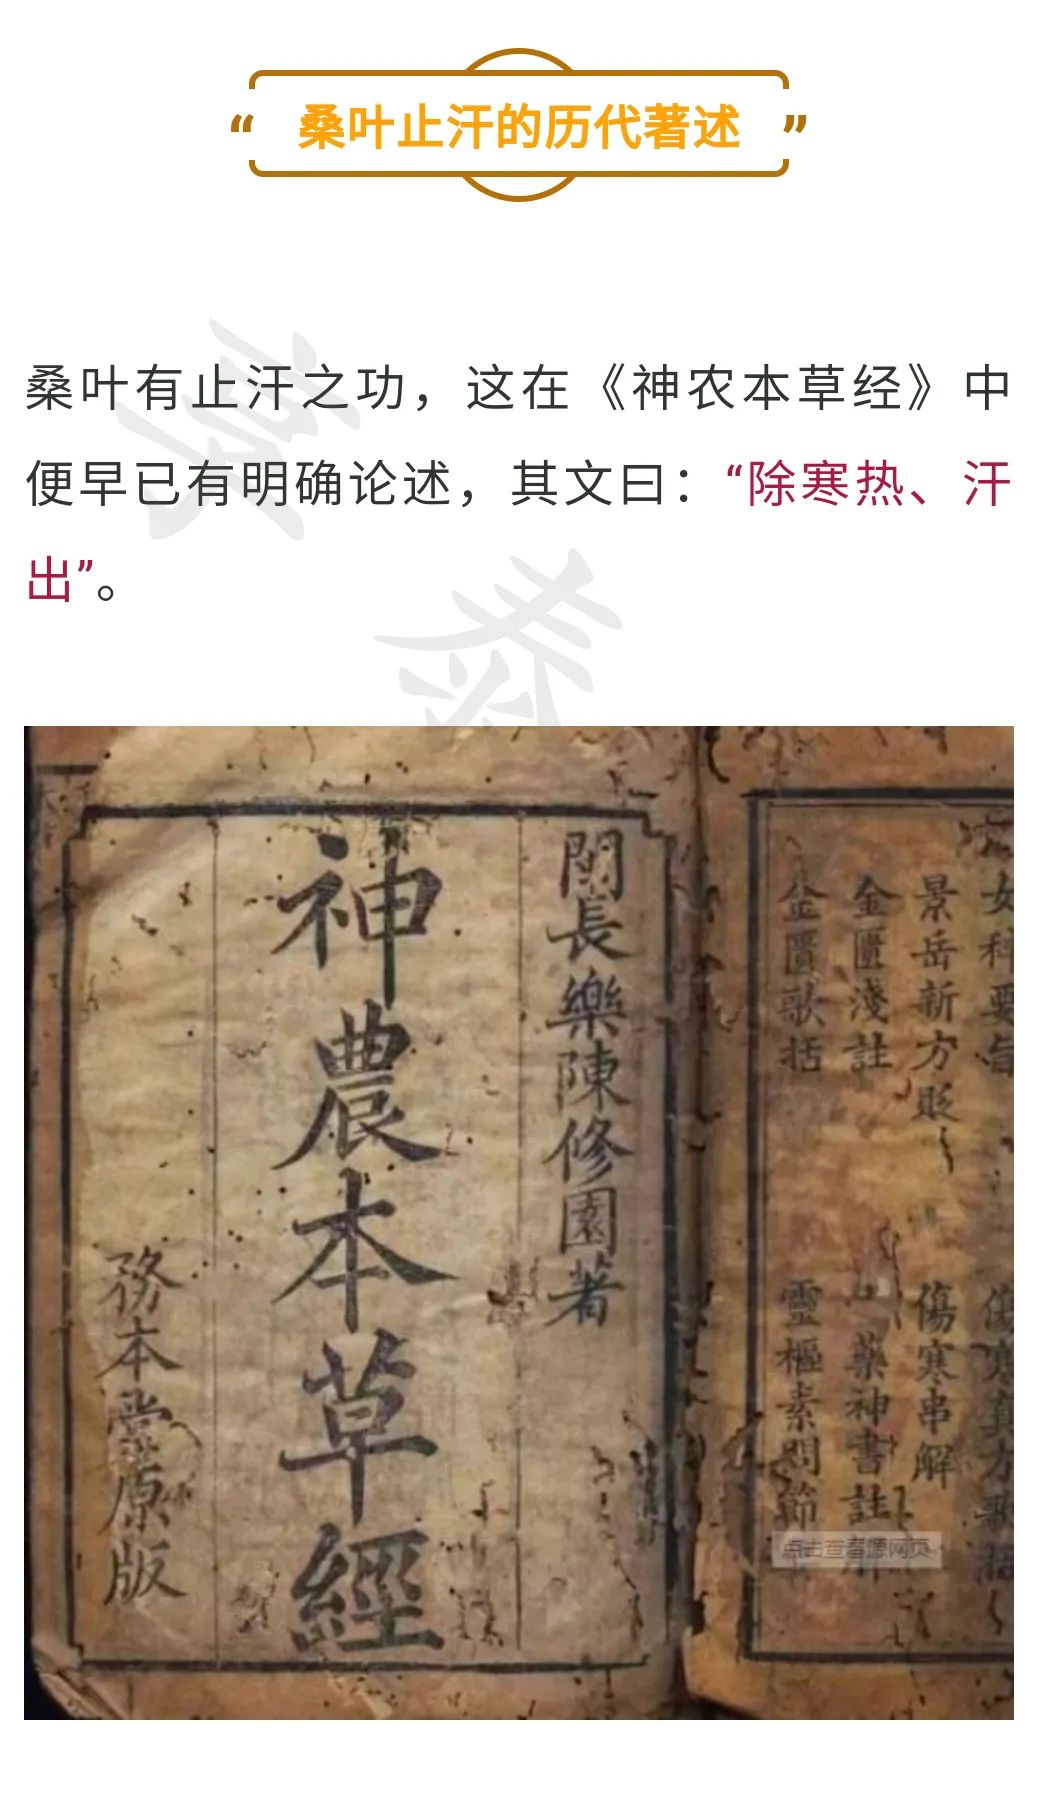 “ 桑叶止汗的历代著述 ”
桑叶有止汗之功，这在《神农本草经》中
便早已有明确论述，其文曰：“除寒热、汗
出”。
泰
閩長樂陳修園著
神農本草經
務本堂原版
女科要旨
傷寒真方歌括
景岳新方貶
傷寒串解
金匱淺註
神書註解
金匱歌括
靈樞素問節
点击查看源网页